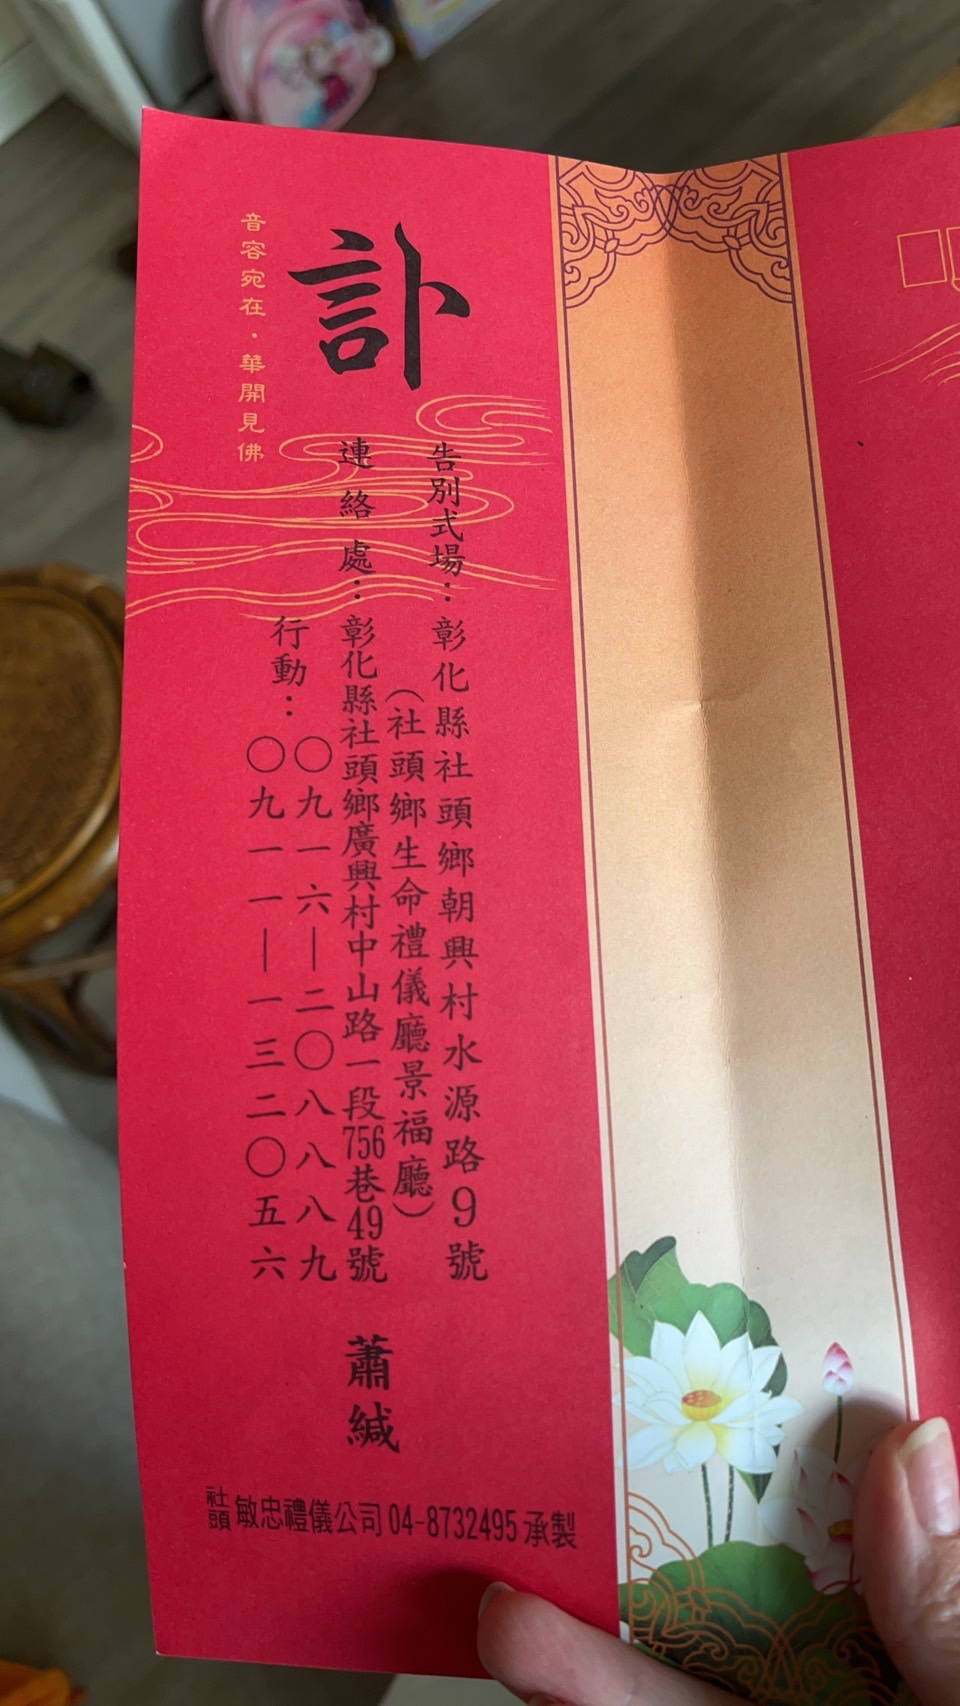 訃
告別式場：彰化縣社頭鄉朝興村水源路9號
（社頭鄉生命禮儀廳景福廳）
連絡處：彰化縣社頭鄉廣興村中山路一段756巷49號
蕭緘
行動：〇九一六—二〇八八八九
〇九一一—一三二〇五六
音容宛在・華開見佛
社頭敏忠禮儀公司 04-8732495 承製